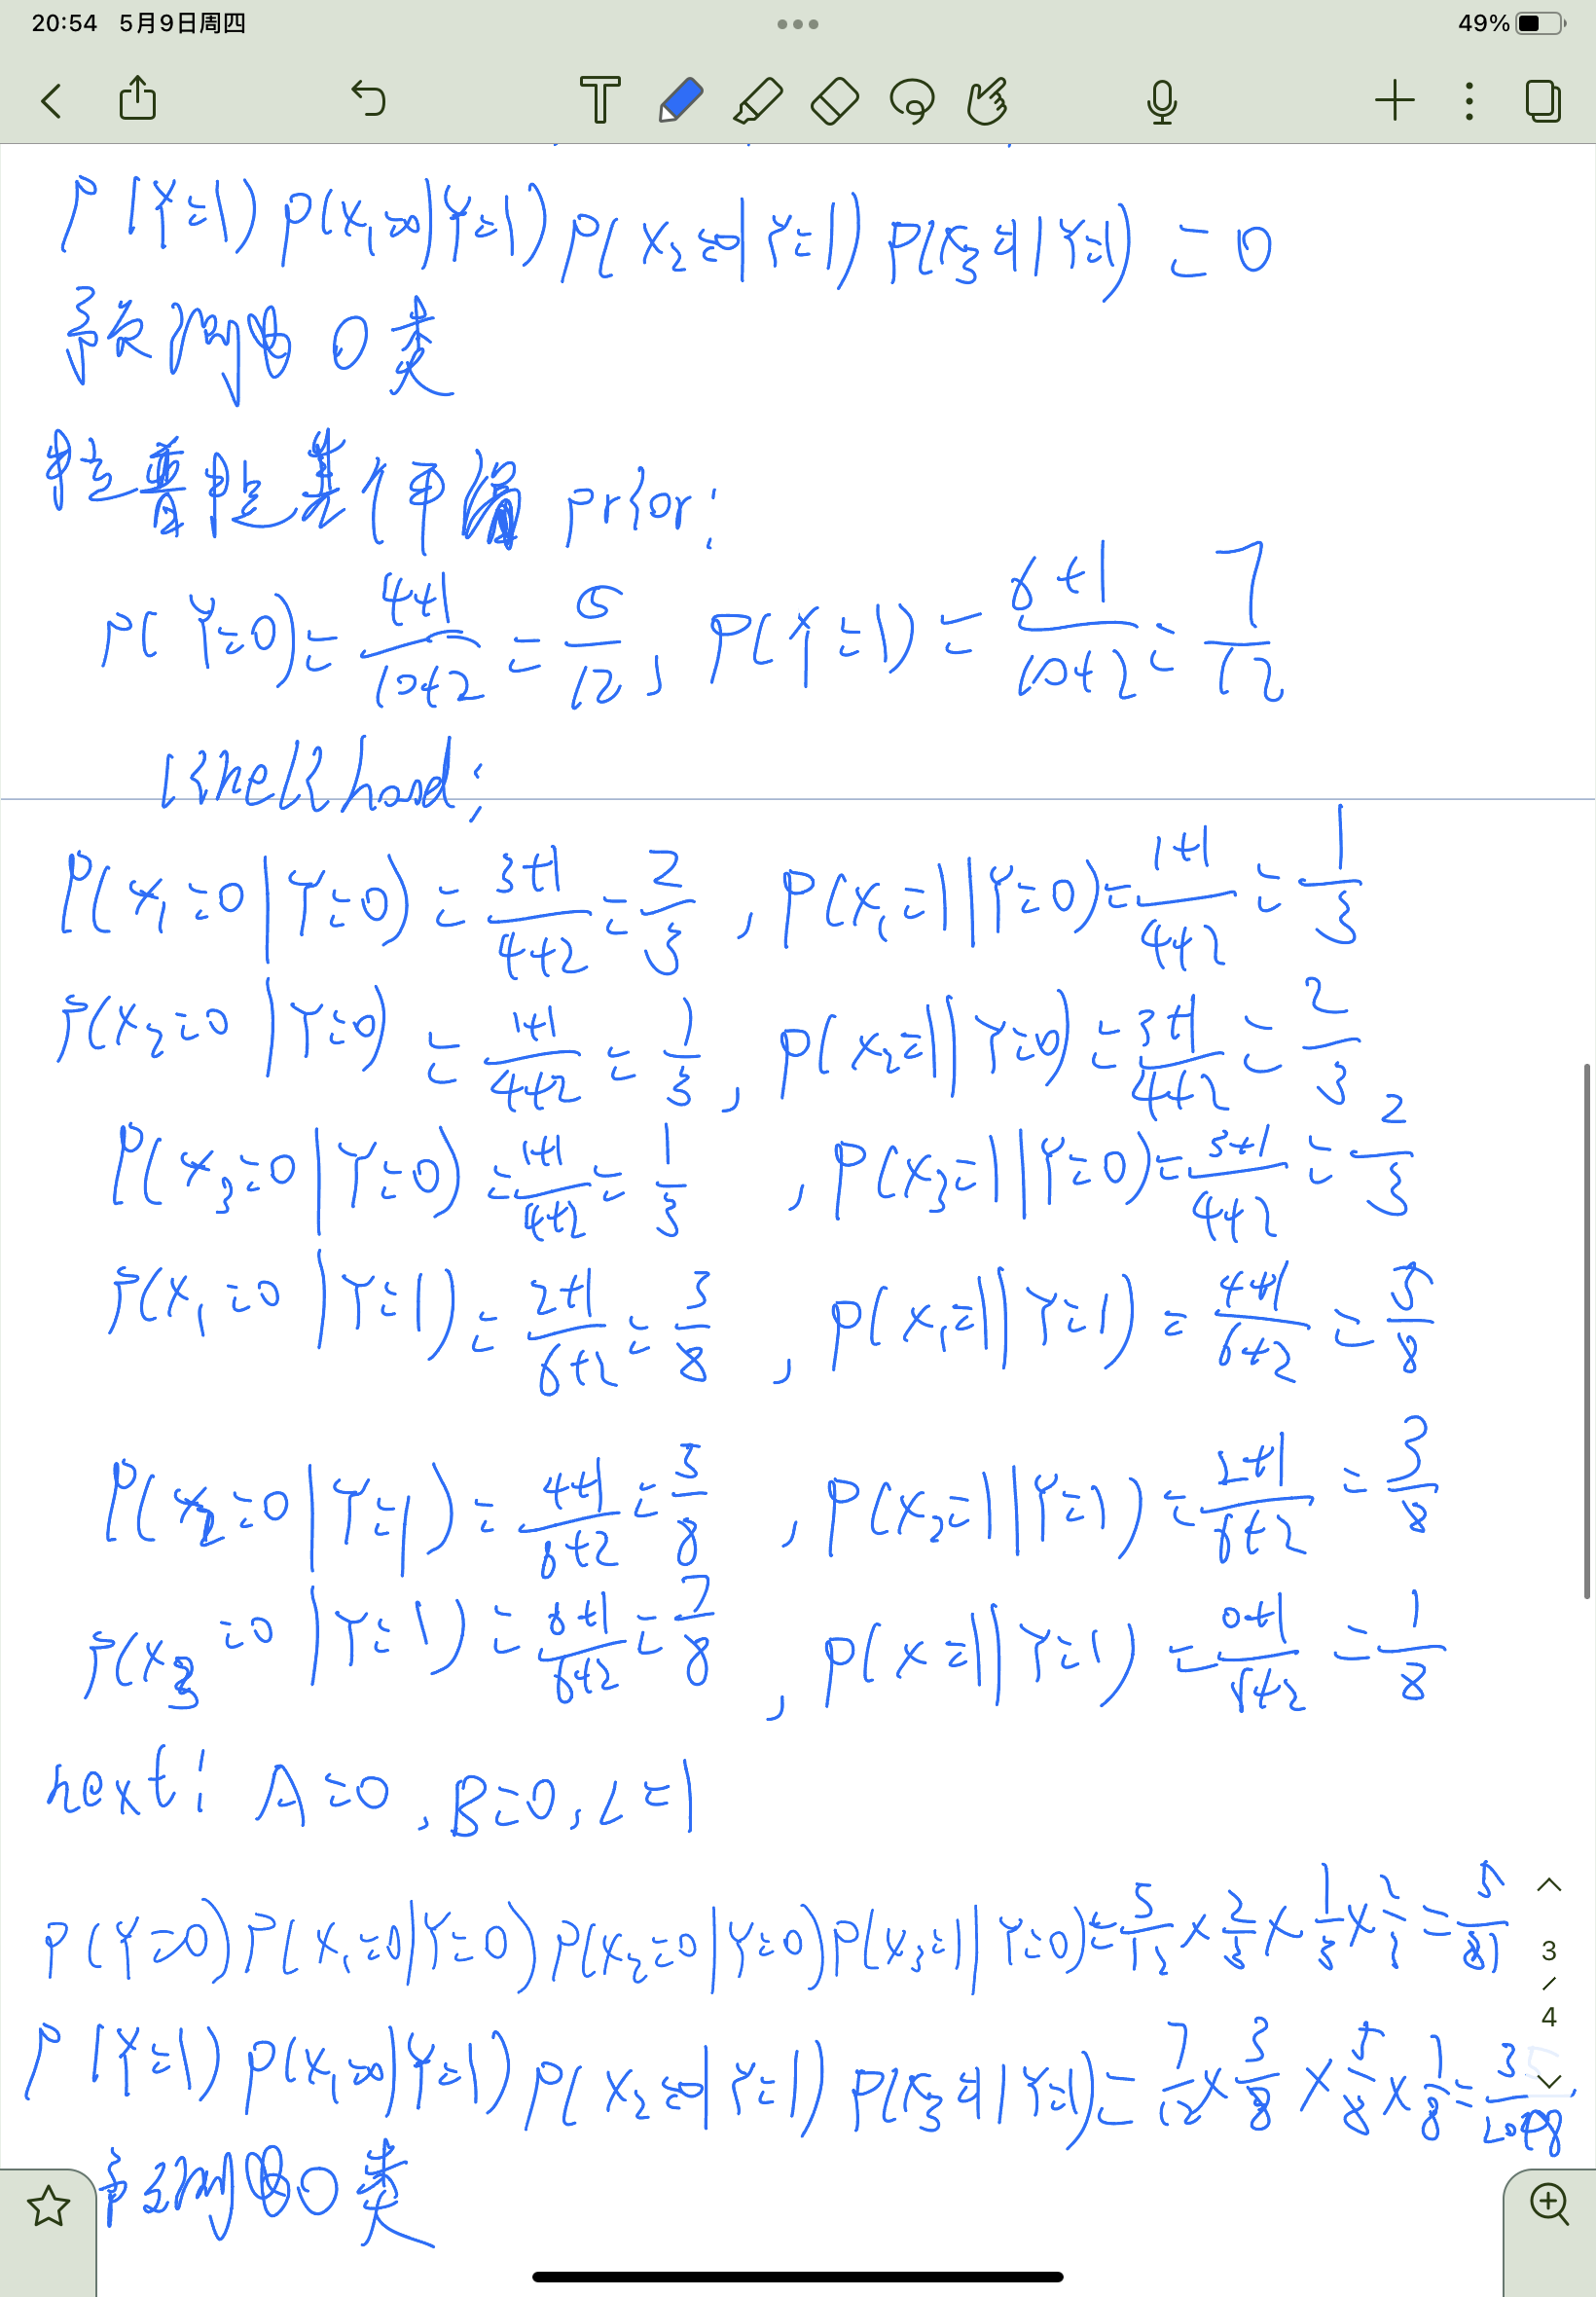 20:54 5月9日周四
49%
P(Y=1)P(X₁=0|Y=1)P(X₂=0|Y=1)P(X₃=1|Y=1)=0
预测为0类
拉普拉 prior:
P(Y=0)=4+1/10+2=5/12, P(Y=1)=6+1/10+2=7/12
likelihood:
P(X₁=0|Y=0)=3+1/4+2=2/3, P(X₁=1|Y=0)=1+1/4+2=1/3
P(X₂=0|Y=0)=1+1/4+2=1/3, P(X₂=1|Y=0)=3+1/4+2=2/3
P(X₃=0|Y=0)=1+1/4+2=1/3, P(X₃=1|Y=0)=3+1/4+2=2/3
P(X₁=0|Y=1)=2+1/6+2=3/8, P(X₁=1|Y=1)=4+1/6+2=5/8
P(X₂=0|Y=1)=4+1/6+2=5/8, P(X₂=1|Y=1)=2+1/6+2=3/8
P(X₃=0|Y=1)=6+1/6+2=7/8, P(X=1|Y=1)=0+1/6+2=1/8
next: A=0, B=0, C=1
P(Y=0)P(X₁=0|Y=0)P(X₂=0|Y=0)P(X₃=1|Y=0)=5/12×2/3×1/3×2/3=5/81
P(Y=1)P(X₁=0|Y=1)P(X₂=0|Y=1)P(X₃=1|Y=1)=7/12×3/8×5/8×1/8=35/2048
预测为0类
3/4